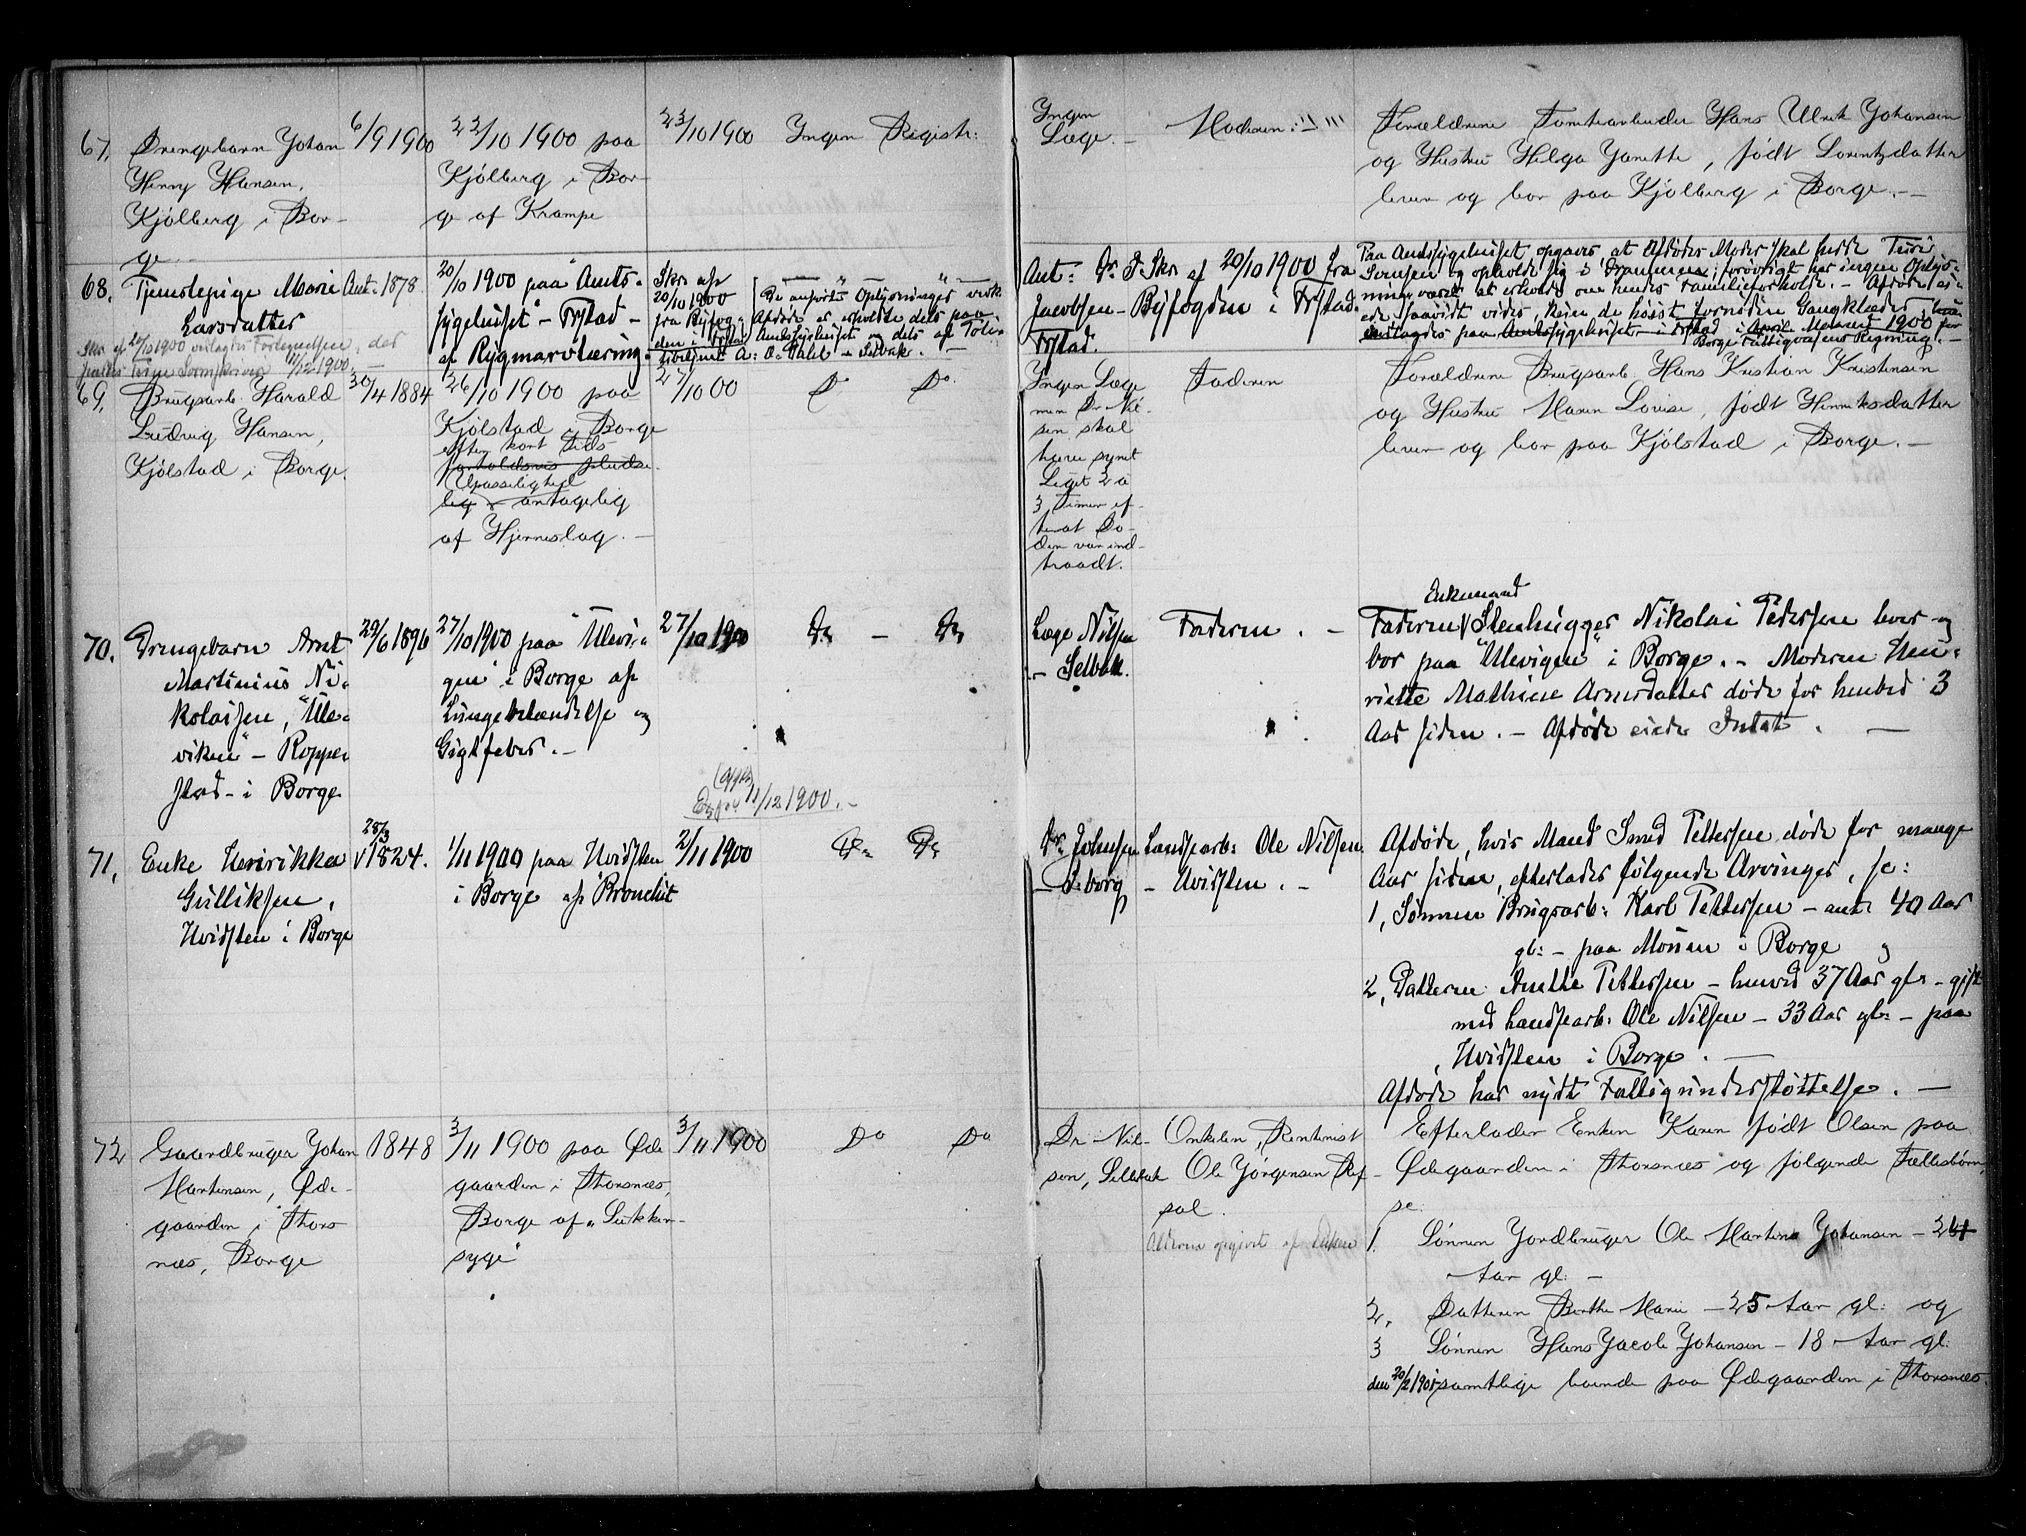 67. Drengebarn Johan
Henry Hansen,
Kjølberg i Bor-
ge.
6/9 1900
22/10 1900 paa
Kjølberg i Bor-
ge af Krampe
23/10 1900
Ingen Registr:
Ingen
Læge. –
Moderen
Forældrene Tomtearbeider Hans Ulrik Johansen
og Hustru Helga Janette, født Lorentzdatter
lever og bor paa Kjølberg i Borge. –
68. Tjenestepige Marie
Larsdatter
Skr. af 20/10 1900
11/12 1900.
Ant: 1878.
20/10 1900 paa "Amts-
sygehuset" – Frstad –
af Rygmarvstæring.
Skr. af
20/10 1900
fra Byfog-
den i Frstad
De anførte Oplysninger vedk.
Afdøde er erholdte dels paa
Amtssygehuset dels af
A: O: Dahl – Selbak. –
Ant: Dr
Jacobsen –
Frstad.
F: Skr. af 20/10 1900 fra
Byfogden i Frstad.
Paa Amtssygehuset opgaves, at Afdødes Moder skal hedde
og opholde sig i Drammen; forøvrigt har ingen Oplys-
ning været at erholde om hendes Familieforholde. – Afdøde ei-
ede saavidt vides, kun de høist fornødne Gangklæder,
indlagdes paa Amtssygehuset i Frstad i April Maaned 1900 for
Borge Fattigvæsens Regning. –
69. Brugsarb. Harald
Ludvig Hansen,
Kjølstad i Borge.
30/4 1884
26/10 1900 paa
Kjølstad i Borge
efter kort Tids
forholdsvis pludse-
Upasselighed
lig – antagelig
af Hjerneslag. –
27/10 00
Do Do
Ingen Læge
men Dr Nil-
sen skal
have synet
Liget 2 a
3 Timer ef-
terat Dø-
den var ind-
traadt.
Faderen
Forældrene Brugsarb. Hans Kristian Kristensen
og Hustru Maren Lovise, født Henriksdatter
lever og bor paa Kjølstad i Borge. –
70. Drengebarn Arnt
Martinius Ni-
kolaisen, "Ule-
viken" – Roppe-
stad – i Borge
29/6 1896
27/10 1900 paa "Ulevi-
gen" i Borge af
Lungebetændelse og
Gigtfeber. –
27/10 1900
Do – Do
Læge Nilsen
– Selbak.
Faderen. –
Enkemand
Faderen Stenhugger Nikolai Pedersen lever og
bor paa "Ulevigen" i Borge. – Moderen Hen-
riette Mathine Arnesdatter døde for henved 3
Aar siden. – Afdøde eiede Intet. –
11/12 1900. –
71. Enke Henrikka
Gulliksen,
Hvidsten i Borge
28/3
1824.
1/11 1900 paa Hvidsten
i Borge af Bronchit
2/11 1900
Do Do
Dr. Johnsen
– Seborg
Landarb: Ole Nilsen
– Hvidsten. –
Afdøde, hvis Mand Smed Pettersen døde for mange
Aar siden, efterlader følgende Arvinger, se:
1, Sønnen Brugsarb: Karl Pettersen – ant 40 Aar
gl: – paa Moum i Borge og
2, Datteren Anethe Pettersen – henved 37 Aar gl. – gift
med Landarb: Ole Nilsen – 33 Aar gl: – paa
Hvidsten i Borge. –
Afdøde har nydt Fattigunderstøttelse. –
72 Gaardbruger Johan
Martinsen, Øde-
gaarden i Thors-
næs, Borge
1848
3/11 1900 paa Øde
gaarden i Thorsnæs,
Borge af "Sukker-
syge"
3/11 1900
Do Do
Dr Nil-
sen, Selbak
Onkelen, Rentenist
Ole Jørgensen Ref-
sal.
Alderen opgivet af Enken
Efterlader Enken Karen født Olsen paa
Ødegaarden i Thorsnæs og følgende Fællesbørn,
se:
1. Sønnen Jordbruger Ole Martin Johansen –
Aar gl. –
2. Datteren Berthe Marie – 25 Aar gl: og
3 Sønnen Hans Jacob Johansen – 18 Aar gl.
den 20/2 1901 samtlige boende paa Ødegaarden i Thorsnæs.